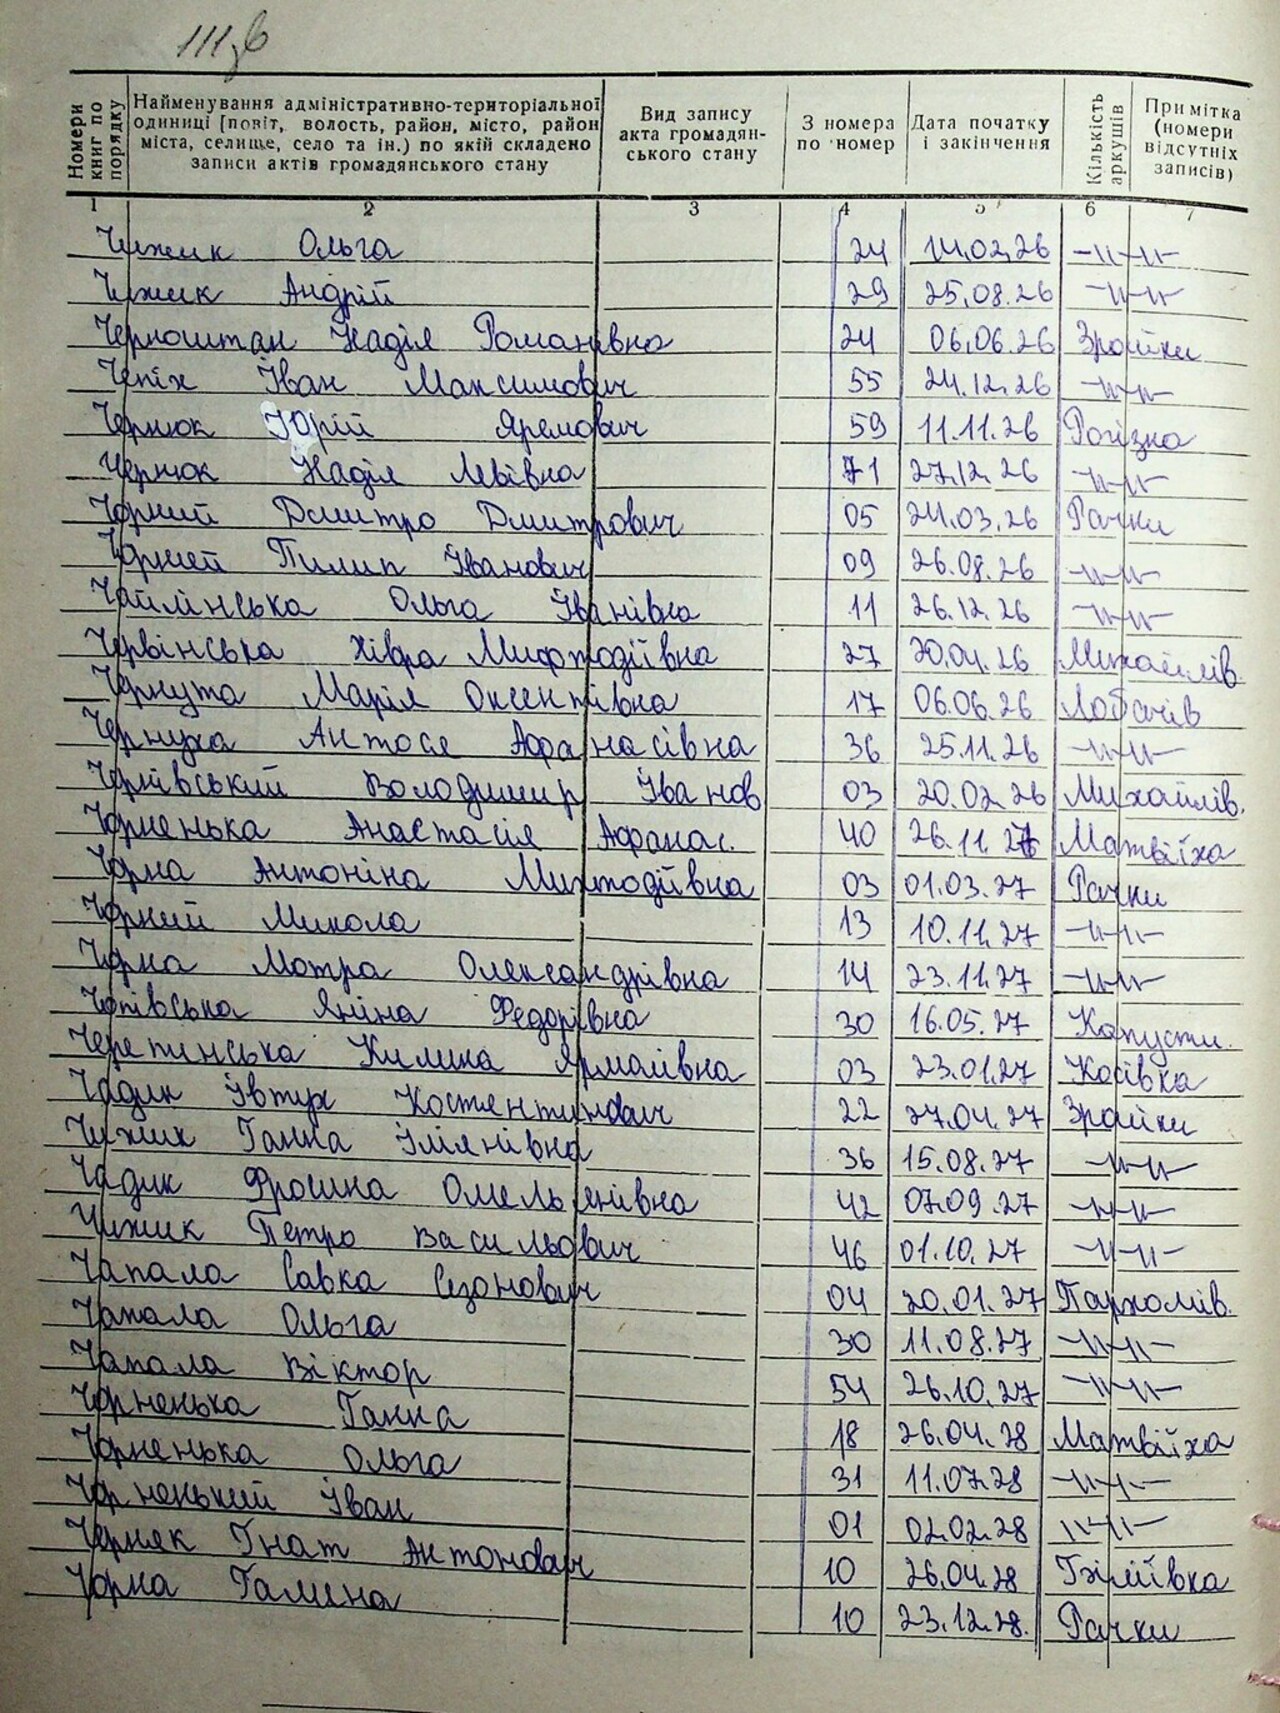 Номери книг по порядку
Найменування адміністративно-територіальної одиниці [повіт, волость, район, місто, район міста, селище, село та ін.) по якій складено записи актів громадянського стану
Вид запису акта громадян-ського стану
З номера по номер
Дата початку і закінчення
Кількість аркушів
Примітка (номери відсутніх записів)
1 2 3 4 5 6 7
Чижик Ольга 24 14.02.26 -"-"-
Чижик Андрій 29 25.08.26 -"-"-
Черноштан Надія Романівна 24 06.06.26 Зрайки
Чепіх Іван Максимович 55 24.12.26 -"-"-
Чернюк Юрій Яремович 59 11.11.26 Рогізна
Чернюк Надія Левівна 71 27.12.26 -"-"-
Чорний Дмитро Дмитрович 05 24.03.26 Рачки
Чорний Пилип Іванович 09 26.08.26 -"-"-
Чайлінська Ольга Іванівна 11 26.12.26 -"-"-
Червінська Хівра Мифтодіївна 27 20.04.26 Михайлів.
Чернута Марія Оксентівна 17 06.06.26 Лобачів
Чернуха Антося Афанасівна 36 25.11.26 -"-"-
Чернівський Володимир Іванов 03 20.02.26 Михайлів.
Чорненька Анастасія Афанас. 40 26.11.26 Матвіїха
Чорна Антоніна Мифтодіївна 03 01.03.27 Рачки
Чорний Микола 13 10.11.27 -"-"-
Чорна Мотра Олександрівна 14 23.11.27 -"-"-
Чопівська Яніна Федорівна 30 16.05.27 Капусти.
Черепинська Килина Ярмаівна 03 23.01.27 Косівка
Чадик Івтух Костентинович 22 27.04.27 Зрайки
Чижик Ганна Іліянівна 36 15.08.27 -"-"-
Чадик Фросина Омельянівна 42 07.09.27 -"-"-
Чижик Петро Васильович 46 01.10.27 -"-"-
Чапала Савка Сезонович 04 20.01.27 Пархомів.
Чапала Ольга 30 11.08.27 -"-"-
Чапала Віктор 54 26.10.27 -"-"-
Чорненька Ганна 18 26.04.28 Матвіїха
Чорненька Ольга 31 11.07.28 -"-"-
Чорненький Іван 01 02.02.28 -"-"-
Черняк Гнат Антонович 10 26.04.28 Галіївка
Чорна Галина 10 23.12.28. Рачки